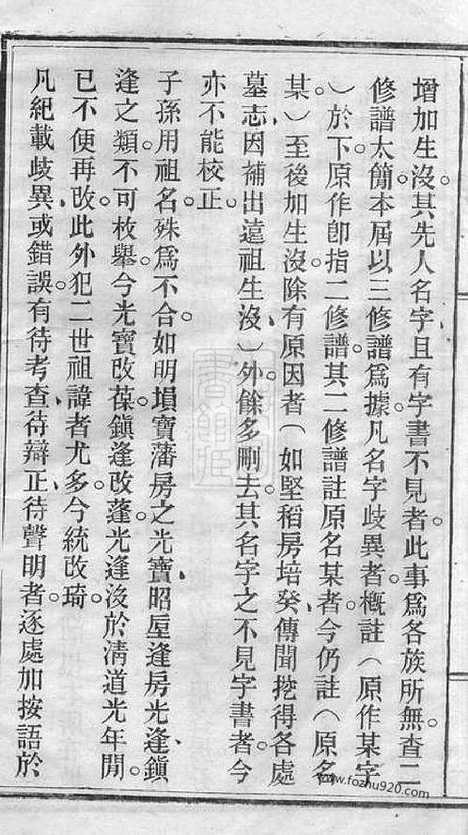 增加生沒其先人名字且有字書不見者。此事爲各族所無。查二
修譜太簡。本屆以三修譜爲據。凡名字歧異者。概註（原作某字
）於下。原作卽指二修譜。其二修譜註原名某者。今仍註（原名
某）至後加生沒。除有原因者（如堅稻房培癸傳聞挖得各處
墓志。因補出遠祖生沒。）外。餘多刪去。其名字之不見字書者。今
亦不能校正。
子孫用祖名。殊爲不合。如明塤寶藩房之光寶、昭垕逢房光逢、鎭
逢之類。不可枚舉。今光寶改葆。鎭逢改蓬。光逢沒於清道光年閒。
已不便再改。此外犯二世祖諱者尤多。今統改琦。
凡紀載歧異、或錯誤。有待考查、待辯正、待聲明者。逐處加按語於
www.fozhu920.com